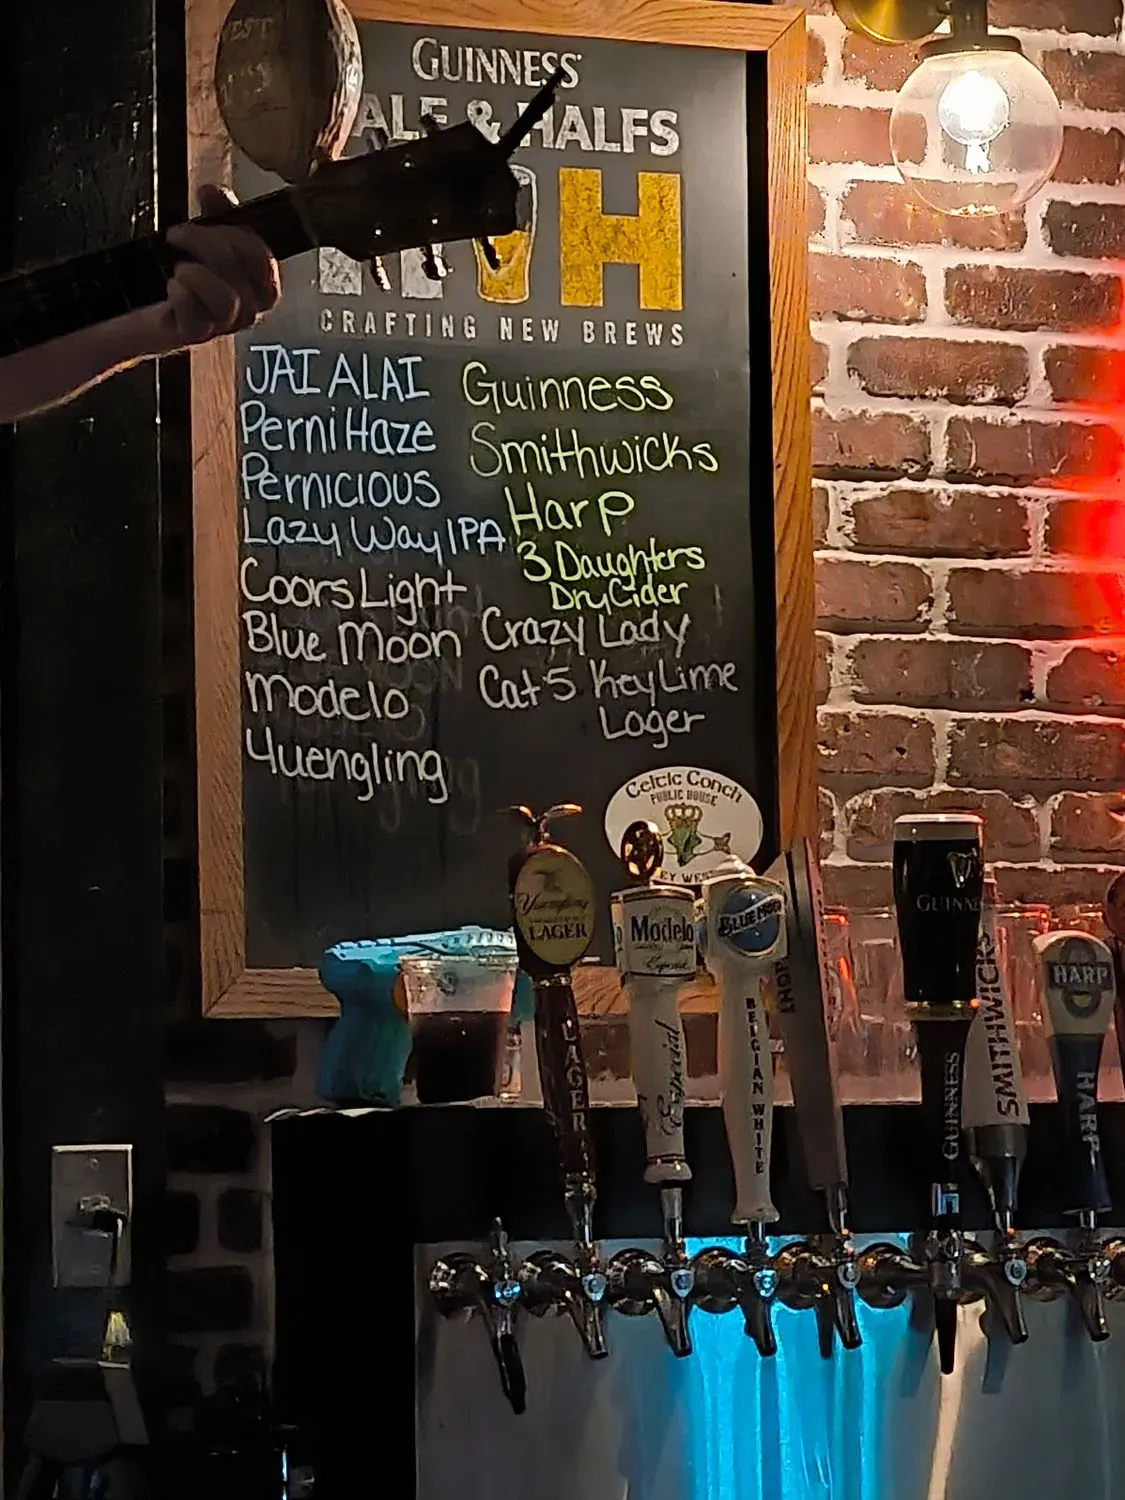 GUINNESS
ALE & HALFS
H
CRAFTING NEW BREWS
JAI ALAI
Perni Haze
Pernicious
Lazy Way IPA
Coors Light
Blue Moon
Modelo
Yuengling
Guinness
Smithwicks
Harp
3 Daughters
Dry Cider
Crazy Lady
Cat 5 Key Lime
Lager
Celtic Conch
PUBLIC HOUSE
EY WES
Yuengling
LAGER
LAGER
Modelo
Especial
Especial
BLUE MOON
BELGIAN WHITE
GUINNESS
GUINNESS
SMITHWICKS
HARP
HARP